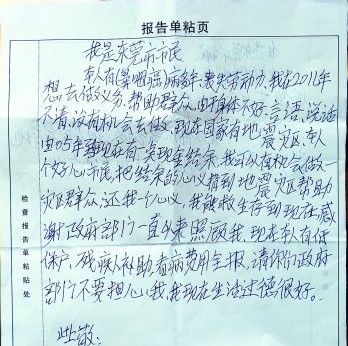 报告单粘页
我是东莞市市民
本人有(鼻咽癌)病多年,丧失劳动力,我在2011年
想去做义务,帮助群众,由于身体不好,言语,说话
不清,没有机会去做,现在国家有地震灾区,本人
由05年到现在有一点现金结余,我可以有机会做一
个好心市民,把结余的心议捐到地震灾区帮助
灾区群众,还我一个心议,我被救生存到现在,感
谢政府部门一直以来照顾我,现在本人有低
保户,残疾人补助,看病费用全报,请你们政府
部门不要担心我,我现在生活过德很好。
此敬:
检查报告单粘贴处